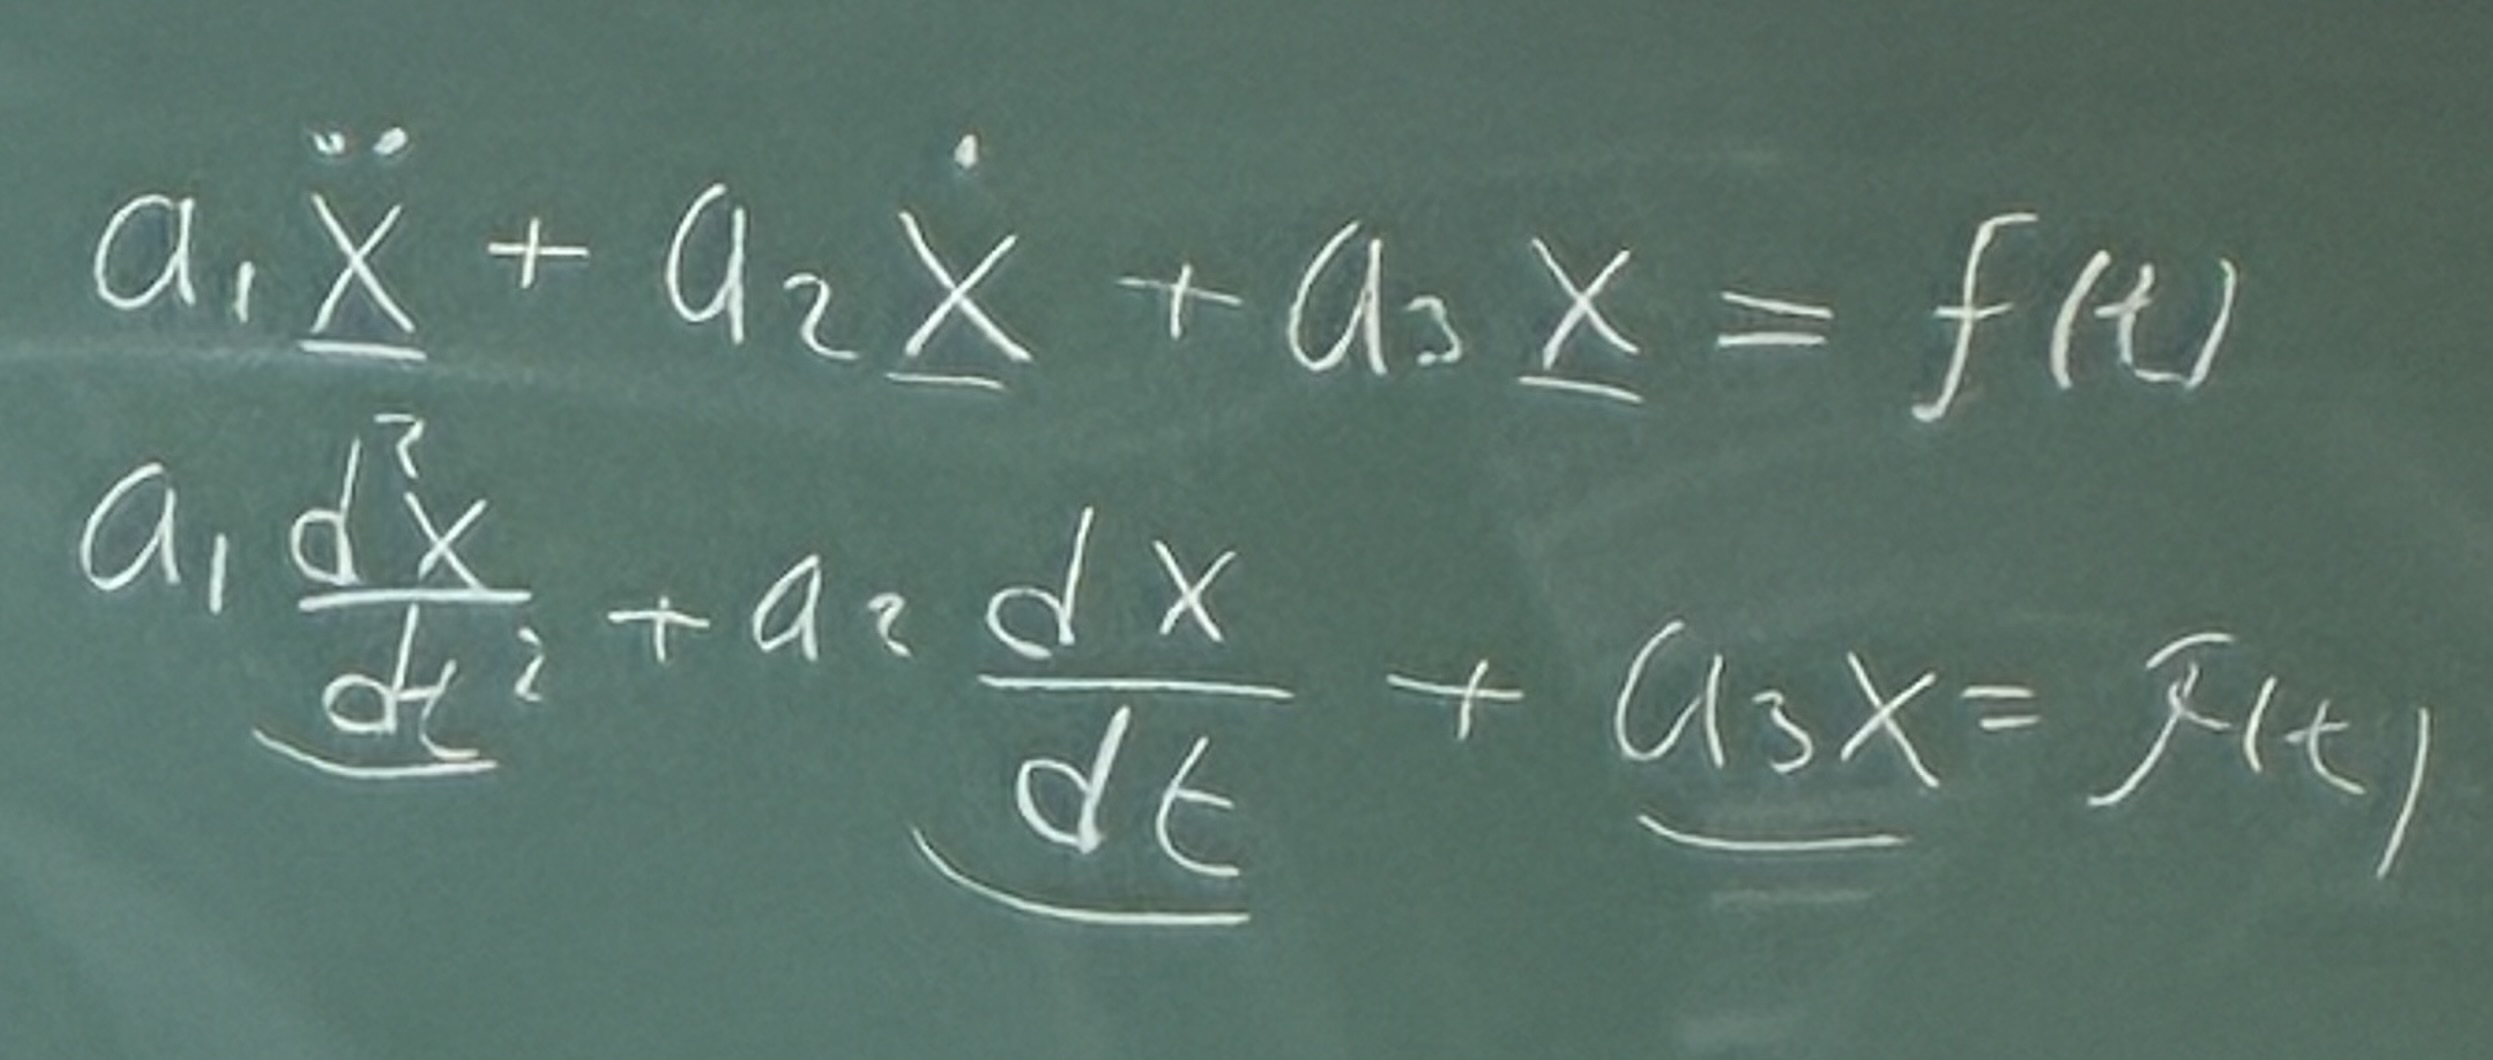 a₁ẍ + a₂ẋ + a₃x = f(t)
a₁ d²x/dt² + a₂ dx/dt + a₃x = f(t)